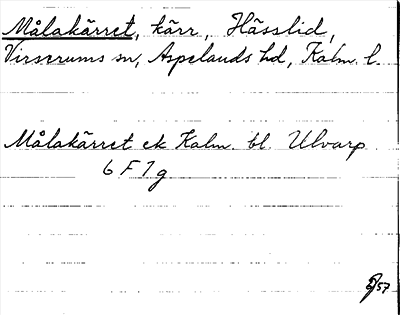 Målakärret, kärr, Hässlid,
Virserums sn, Aspelands hd, Kalm. l.
Målakärret ek Kalm. bl. Ulvarp
6 F 7 g
57